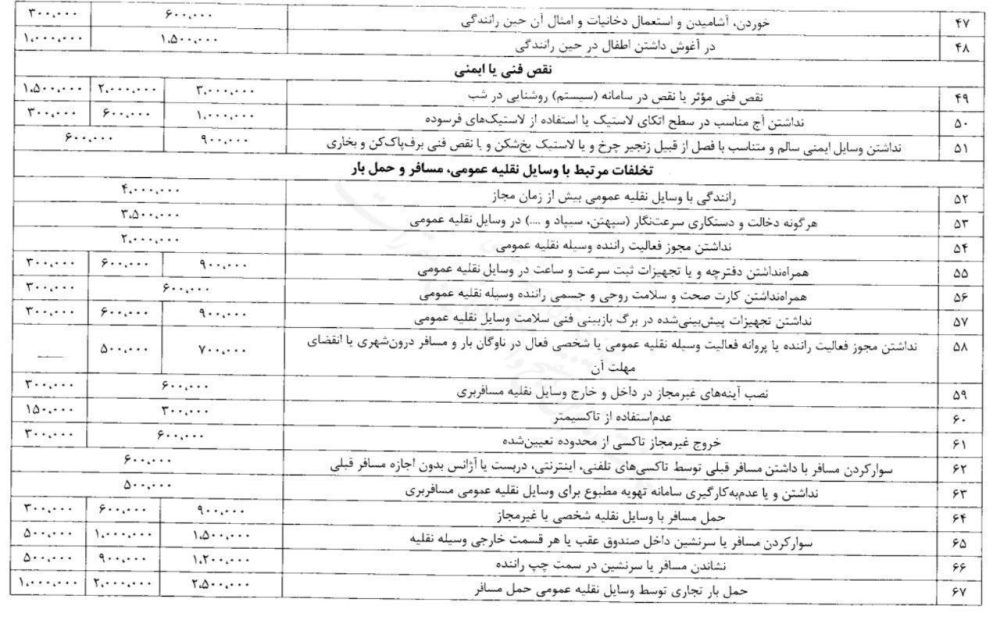 ۴۷ خوردن، آشامیدن و استعمال دخانیات و امثال آن حین رانندگی ۶۰۰,۰۰۰ ۳۰۰,۰۰۰
۴۸ در آغوش داشتن اطفال در حین رانندگی ۱,۵۰۰,۰۰۰ ۱,۰۰۰,۰۰۰
نقص فنی یا ایمنی
۴۹ نقص فنی مؤثر یا نقص در سامانه (سیستم) روشنایی در شب ۳,۰۰۰,۰۰۰ ۲,۰۰۰,۰۰۰ ۱,۵۰۰,۰۰۰
۵۰ نداشتن آج مناسب در سطح اتکای لاستیک یا استفاده از لاستیک‌های فرسوده ۱,۰۰۰,۰۰۰ ۶۰۰,۰۰۰ ۳۰۰,۰۰۰
۵۱ نداشتن وسایل ایمنی سالم و متناسب با فصل از قبیل زنجیر چرخ و یا لاستیک یخ‌شکن و یا نقص فنی برف‌پاک‌کن و بخاری ۹۰۰,۰۰۰ ۶۰۰,۰۰۰
تخلفات مرتبط با وسایل نقلیه عمومی، مسافر و حمل بار
۵۲ رانندگی با وسایل نقلیه عمومی بیش از زمان مجاز ۴,۰۰۰,۰۰۰
۵۳ هرگونه دخالت و دستکاری سرعت‌نگار (سپهتن، سیپاد و ....) در وسایل نقلیه عمومی ۳,۵۰۰,۰۰۰
۵۴ نداشتن مجوز فعالیت راننده وسیله نقلیه عمومی ۲,۰۰۰,۰۰۰
۵۵ همراه‌نداشتن دفترچه و یا تجهیزات ثبت سرعت و ساعت در وسایل نقلیه عمومی ۹۰۰,۰۰۰ ۶۰۰,۰۰۰ ۳۰۰,۰۰۰
۵۶ همراه‌نداشتن کارت صحت و سلامت روحی و جسمی راننده وسیله نقلیه عمومی ۶۰۰,۰۰۰ ۳۰۰,۰۰۰
۵۷ نداشتن تجهیزات پیش‌بینی‌شده در برگ بازبینی فنی سلامت وسایل نقلیه عمومی ۹۰۰,۰۰۰ ۶۰۰,۰۰۰ ۳۰۰,۰۰۰
۵۸ نداشتن مجوز فعالیت راننده یا پروانه فعالیت وسیله نقلیه عمومی یا شخصی فعال در ناوگان بار و مسافر درون‌شهری یا انقضای ۷۰۰,۰۰۰ ۵۰۰,۰۰۰ —
مهلت آن
۵۹ نصب آینه‌های غیرمجاز در داخل و خارج وسایل نقلیه مسافربری ۶۰۰,۰۰۰ ۳۰۰,۰۰۰
۶۰ عدم‌استفاده از تاکسیمتر ۳۰۰,۰۰۰ ۱۵۰,۰۰۰
۶۱ خروج غیرمجاز تاکسی از محدوده تعیین‌شده ۶۰۰,۰۰۰ ۳۰۰,۰۰۰
۶۲ سوارکردن مسافر با داشتن مسافر قبلی توسط تاکسی‌های تلفنی، اینترنتی، دربست یا آژانس بدون اجازه مسافر قبلی ۶۰۰,۰۰۰
۶۳ نداشتن و یا عدم‌به‌کارگیری سامانه تهویه مطبوع برای وسایل نقلیه عمومی مسافربری ۵۰۰,۰۰۰
۶۴ حمل مسافر با وسایل نقلیه شخصی یا غیرمجاز ۹۰۰,۰۰۰ ۶۰۰,۰۰۰ ۳۰۰,۰۰۰
۶۵ سوارکردن مسافر یا سرنشین داخل صندوق عقب یا هر قسمت خارجی وسیله نقلیه ۱,۵۰۰,۰۰۰ ۱,۰۰۰,۰۰۰ ۵۰۰,۰۰۰
۶۶ نشاندن مسافر یا سرنشین در سمت چپ راننده ۱,۲۰۰,۰۰۰ ۹۰۰,۰۰۰ ۵۰۰,۰۰۰
۶۷ حمل بار تجاری توسط وسایل نقلیه عمومی حمل مسافر ۲,۵۰۰,۰۰۰ ۲,۰۰۰,۰۰۰ ۱,۰۰۰,۰۰۰